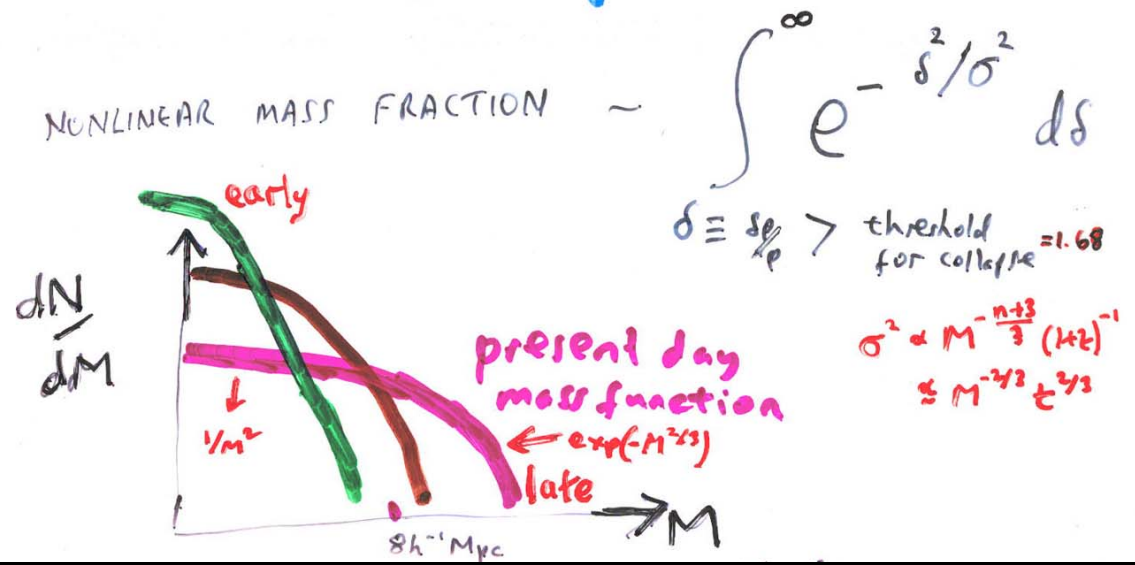 NONLINEAR MASS FRACTION ~ ∫^∞ e^{- δ²/σ²} dδ
δ ≡ δρ/ρ > threshold for collapse =1.68
σ² ∝ M^{-\frac{n+3}{3}} (1+z)^{-1}
≅ M^{-2/3} t^{2/3}
early
dN/dM
present day
mass function
1/M²
← exp(-M^{2/3})
late
M
8h⁻¹ Mpc